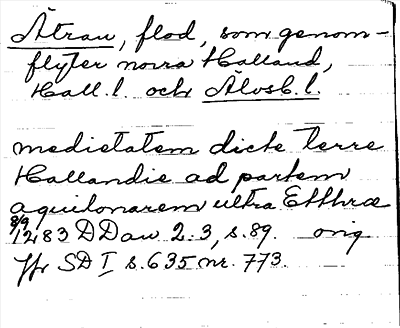 Ätran, flod, som genom-
flyter norra Halland,
Hall. l. och Älvsb. l.
medietatem dicte terre
Hallandie ad partem
aquilonarem ultra Etthræ
8/9 1283 DDan 2:3, s. 89. orig
Jfr SD I s. 635 nr. 773.